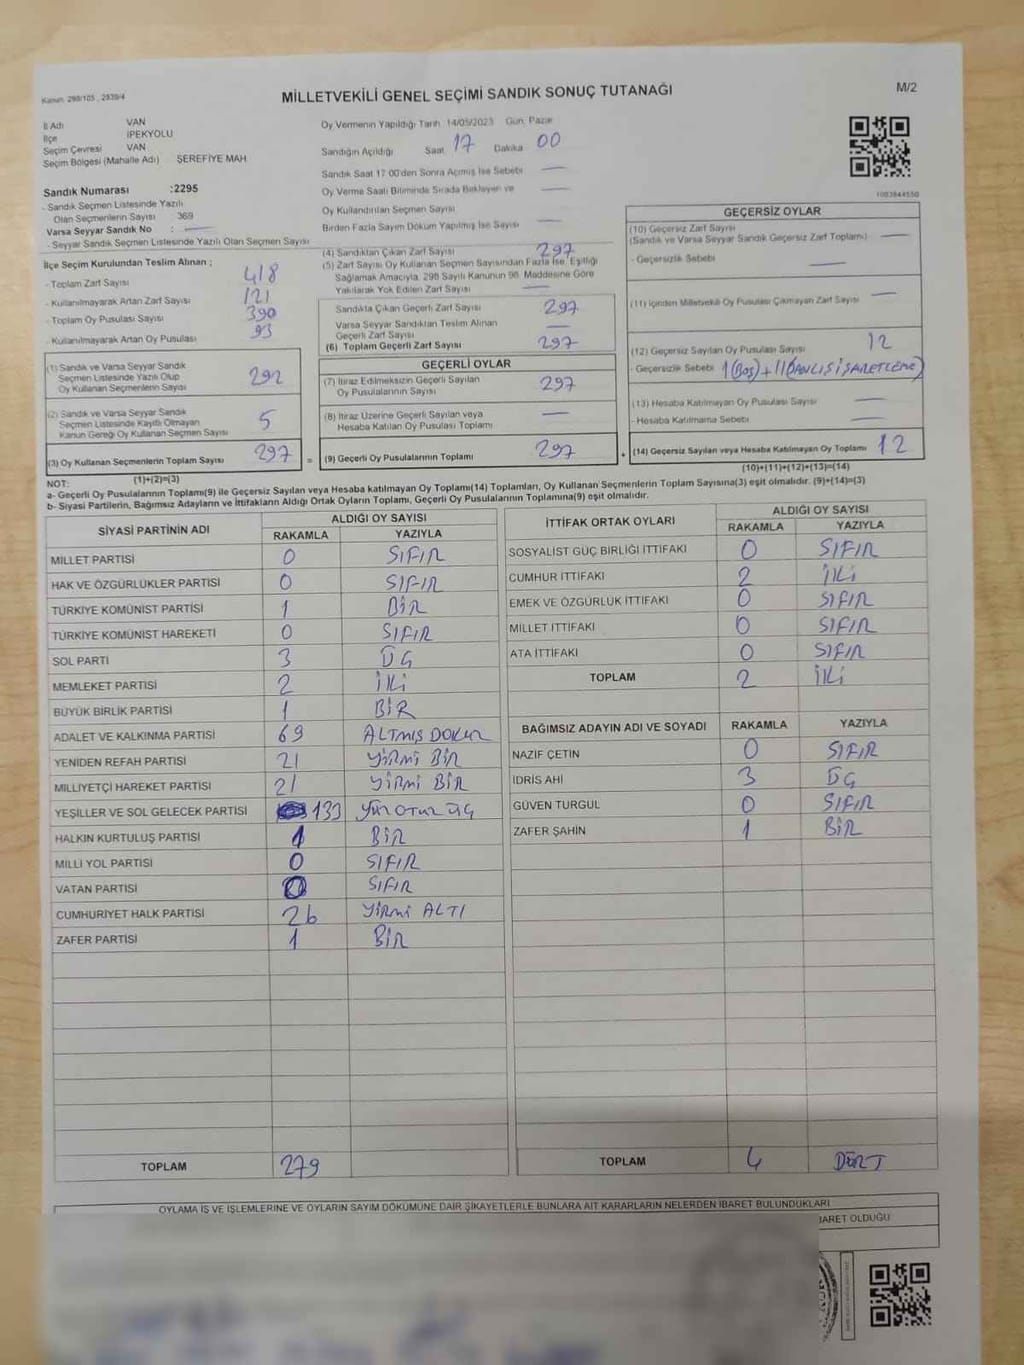 Kanun: 298/105 , 2839/4
MİLLETVEKİLİ GENEL SEÇİMİ SANDIK SONUÇ TUTANAĞI
M/2
İl Adı VAN
İlçe İPEKYOLU
Seçim Çevresi VAN
Seçim Bölgesi (Mahalle Adı) ŞEREFİYE MAH.
Sandık Numarası :2295
- Sandık Seçmen Listesinde Yazılı
Olan Seçmenlerin Sayısı 369
Varsa Seyyar Sandık No : —
- Seyyar Sandık Seçmen Listesinde Yazılı Olan Seçmen Sayısı
Oy Vermenin Yapıldığı Tarih 14/05/2023 Gün: Pazar
Sandığın Açıldığı Saat 17 Dakika 00
Sandık Saat 17:00'den Sonra Açılmış İse Sebebi —
Oy Verme Saati Bitiminde Sırada Bekleyen ve
Oy Kullandırılan Seçmen Sayısı —
Birden Fazla Sayım Döküm Yapılmış İse Sayısı —
1003844550
İlçe Seçim Kurulundan Teslim Alınan ;
- Toplam Zarf Sayısı 418
- Kullanılmayarak Artan Zarf Sayısı 121
- Toplam Oy Pusulası Sayısı 390
- Kullanılmayarak Artan Oy Pusulası 93
(1) Sandık ve Varsa Seyyar Sandık
Seçmen Listesinde Yazılı Olup
Oy Kullanan Seçmenlerin Sayısı 292
(2) Sandık ve Varsa Seyyar Sandık
Seçmen Listesinde Kayıtlı Olmayan
Kanun Gereği Oy Kullanan Seçmen Sayısı 5
(3) Oy Kullanan Seçmenlerin Toplam Sayısı 297 =
(1)+(2)=(3)
(4) Sandıktan Çıkan Zarf Sayısı 297
(5) Zarf Sayısı Oy Kullanan Seçmen Sayısından Fazla İse, Eşitliği
Sağlamak Amacıyla, 298 Sayılı Kanunun 98. Maddesine Göre
Yakılarak Yok Edilen Zarf Sayısı —
Sandıkta Çıkan Geçerli Zarf Sayısı 297
Varsa Seyyar Sandıktan Teslim Alınan
Geçerli Zarf Sayısı —
(6) Toplam Geçerli Zarf Sayısı 297
GEÇERLİ OYLAR
(7) İtiraz Edilmeksizin Geçerli Sayılan
Oy Pusulalarının Sayısı 297
(8) İtiraz Üzerine Geçerli Sayılan veya
Hesaba Katılan Oy Pusulası Toplamı —
(9) Geçerli Oy Pusulalarının Toplamı 297 +
GEÇERSİZ OYLAR
(10) Geçersiz Zarf Sayısı
(Sandık ve Varsa Seyyar Sandık Geçersiz Zarf Toplamı) —
- Geçersizlik Sebebi —
(11) İçinden Milletvekili Oy Pusulası Çıkmayan Zarf Sayısı —
(12) Geçersiz Sayılan Oy Pusulası Sayısı 12
- Geçersizlik Sebebi 1(BOŞ)+11(YANLIŞ İŞARETLEME)
(13) Hesaba Katılmayan Oy Pusulası Sayısı —
- Hesaba Katılmama Sebebi —
(14) Geçersiz Sayılan veya Hesaba Katılmayan Oy Toplamı 12
(10)+(11)+(12)+(13)=(14)
NOT:
a- Geçerli Oy Pusulalarının Toplamı(9) ile Geçersiz Sayılan veya Hesaba katılmayan Oy Toplamı(14) Toplamları, Oy Kullanan Seçmenlerin Toplam Sayısına(3) eşit olmalıdır. (9)+(14)=(3)
b- Siyasi Partilerin, Bağımsız Adayların ve İttifakların Aldığı Ortak Oyların Toplamı, Geçerli Oy Pusulalarının Toplamına(9) eşit olmalıdır.
SİYASİ PARTİNİN ADI
ALDIĞI OY SAYISI
RAKAMLA YAZIYLA
MİLLET PARTİSİ 0 SIFIR
HAK VE ÖZGÜRLÜKLER PARTİSİ 0 SIFIR
TÜRKİYE KOMÜNİST PARTİSİ 1 BİR
TÜRKİYE KOMÜNİST HAREKETİ 0 SIFIR
SOL PARTİ 3 ÜÇ
MEMLEKET PARTİSİ 2 İKİ
BÜYÜK BİRLİK PARTİSİ 1 BİR
ADALET VE KALKINMA PARTİSİ 69 ALTMIŞ DOKUZ
YENİDEN REFAH PARTİSİ 21 YİRMİ BİR
MİLLİYETÇİ HAREKET PARTİSİ 21 YİRMİ BİR
YEŞİLLER VE SOL GELECEK PARTİSİ 133 YÜZ OTUZ ÜÇ
HALKIN KURTULUŞ PARTİSİ 1 BİR
MİLLİ YOL PARTİSİ 0 SIFIR
VATAN PARTİSİ 0 SIFIR
CUMHURİYET HALK PARTİSİ 26 YİRMİ ALTI
ZAFER PARTİSİ 1 BİR
TOPLAM 279
İTTİFAK ORTAK OYLARI
ALDIĞI OY SAYISI
RAKAMLA YAZIYLA
SOSYALİST GÜÇ BİRLİĞİ İTTİFAKI 0 SIFIR
CUMHUR İTTİFAKI 2 İKİ
EMEK VE ÖZGÜRLÜK İTTİFAKI 0 SIFIR
MİLLET İTTİFAKI 0 SIFIR
ATA İTTİFAKI 0 SIFIR
TOPLAM 2 İKİ
BAĞIMSIZ ADAYIN ADI VE SOYADI RAKAMLA YAZIYLA
NAZİF ÇETİN 0 SIFIR
İDRİS AHİ 3 ÜÇ
GÜVEN TURGUL 0 SIFIR
ZAFER ŞAHİN 1 BİR
TOPLAM 4 DÖRT
OYLAMA İŞ VE İŞLEMLERİNE VE OYLARIN SAYIM DÖKÜMÜNE DAİR ŞİKAYETLERLE BUNLARA AİT KARARLARIN NELERDEN İBARET BULUNDUKLARI
İBARET OLDUĞU